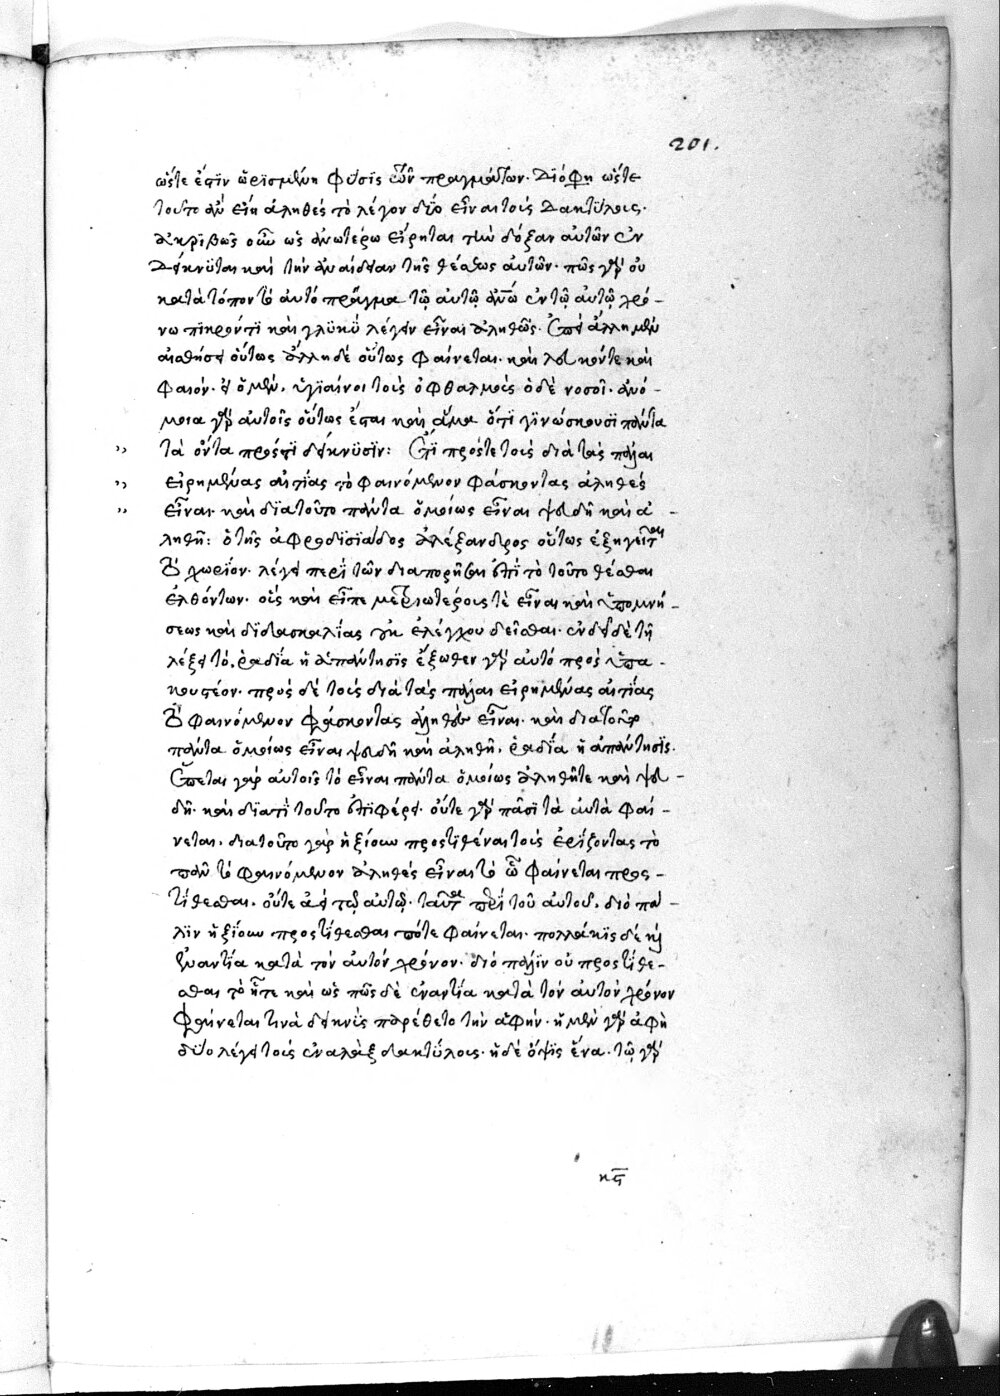 201.
ὥστε ἐστὶν ὡρισμένη φύσις τῶν πραγμάτων. διό φη ὥστε
τοῦτο ἂν εἴη ἀληθὲς τὸ λέγον δύο εἶναι τοὺς δακτύλους.
ἀκριβῶς οὖν ὡς ἀνωτέρω εἴρηται τὴν δόξαν αὐτῶν ἐν
δείκνυται καὶ τὴν ἀναίδειαν τῆς θέσεως αὐτῶν. πῶς γὰρ οὐ
κατὰ τόπον τὸ αὐτὸ πρᾶγμα τῷ αὐτῷ ἀνω ἐν τῷ αὐτῷ χρό-
νω πικρόν τι καὶ γλυκὺ λέγειν εἶναι ἀληθῶς. ἐπεὶ ἄλλη μὲν
αἰσθήσει οὕτως ἄλλη δὲ οὕτως φαίνεται. καὶ λευκόν τε καὶ
φαιόν. εἰ ὁ μὲν, ὑγιαίνοι τοὺς ὀφθαλμοὺς ὁ δὲ νοσοῖ. ἀνό-
μοια γὰρ αὐτοῖς οὕτως ἔσται καὶ ἅμα ὅτι γινώσκουσι πάντα
τὰ ὄντα πρόσεστι δείκνυσιν: Ἔτι πρός τε τοὺς διὰ τὰς πάλαι
εἰρημένας αἰτίας τὸ φαινόμενον φάσκοντας ἀληθὲς
εἶναι. καὶ διατοῦτο πάντα ὁμοίως εἶναι ψευδῆ καὶ ἀ-
ληθῆ: ὁ τῆς ἀφροδισιάδος ἀλέξανδρος οὕτως ἐξηγεῖται
τὸ χωρίον. λέγει περὶ τῶν διαπορῆσαι ἐπὶ τὸ τοῦτο θέσθαι
ἐλθόντων. οὓς καὶ εἶπε μετριωτέρους τὲ εἶναι καὶ ὑπομνή-
σεως καὶ διδασκαλίας οὐκ ἐλέγχου δεῖσθαι. ἐνδεῖ δὲ τῇ
λέξει τὸ, ῥαδία ἡ ἀπάντησις ἔξωθεν γὰρ αὐτὸ προς υπα-
κουστέον. πρὸς δὲ τοὺς διὰ τὰς πάλαι εἰρημένας αἰτίας
τὸ φαινόμενον φάσκοντας ἀληθὲς εἶναι. καὶ διατοῦτο
πάντα ὁμοίως εἶναι ψευδῆ καὶ ἀληθῆ, ῥαδία ἡ ἀπάντησις.
ἕπεται γὰρ αὐτοῖς τὸ εἶναι πάντα ὁμοίως ἀληθῆ τε καὶ ψευ-
δῆ. καὶ διατὶ τοῦτο ἐπιφέρει. οὔτε γὰρ πᾶσι τὰ αὐτὰ φαί-
νεται. διατοῦτο γὰρ ἠξίουν προστιθέναι τοὺς ἐρίζοντας τὸ
πᾶν τὸ φαινόμενον ἀληθὲς εἶναι τὸ ᾧ φαίνεται προς-
τίθεσθαι, οὔτε ἀεὶ τῷ αὐτῷ. ταῦτα περὶ τοῦ αὐτοῦ. διὸ πά-
λιν ἠξίουν προςτίθεσθαι πότε φαίνεται. πολλάκις δὲ καὶ
ἐναντία κατὰ τὸν αὐτὸν χρόνον. διὸ πάλιν οὐ προςτίθε-
σθαι τὸ ᾗ τε καὶ ὡς πῶς δὲ ἐναντία κατὰ τὸν αὐτὸν χρόνον
φαίνεται τινὰ δεικνὺς παρέθετο τὴν ἁφήν. ἡ μὲν γὰρ ἁφὴ
δύο λέγει τοὺς ἐναλὰξ δακτύλους. ἡ δὲ ὄψις ἕνα. τῷ γὰρ